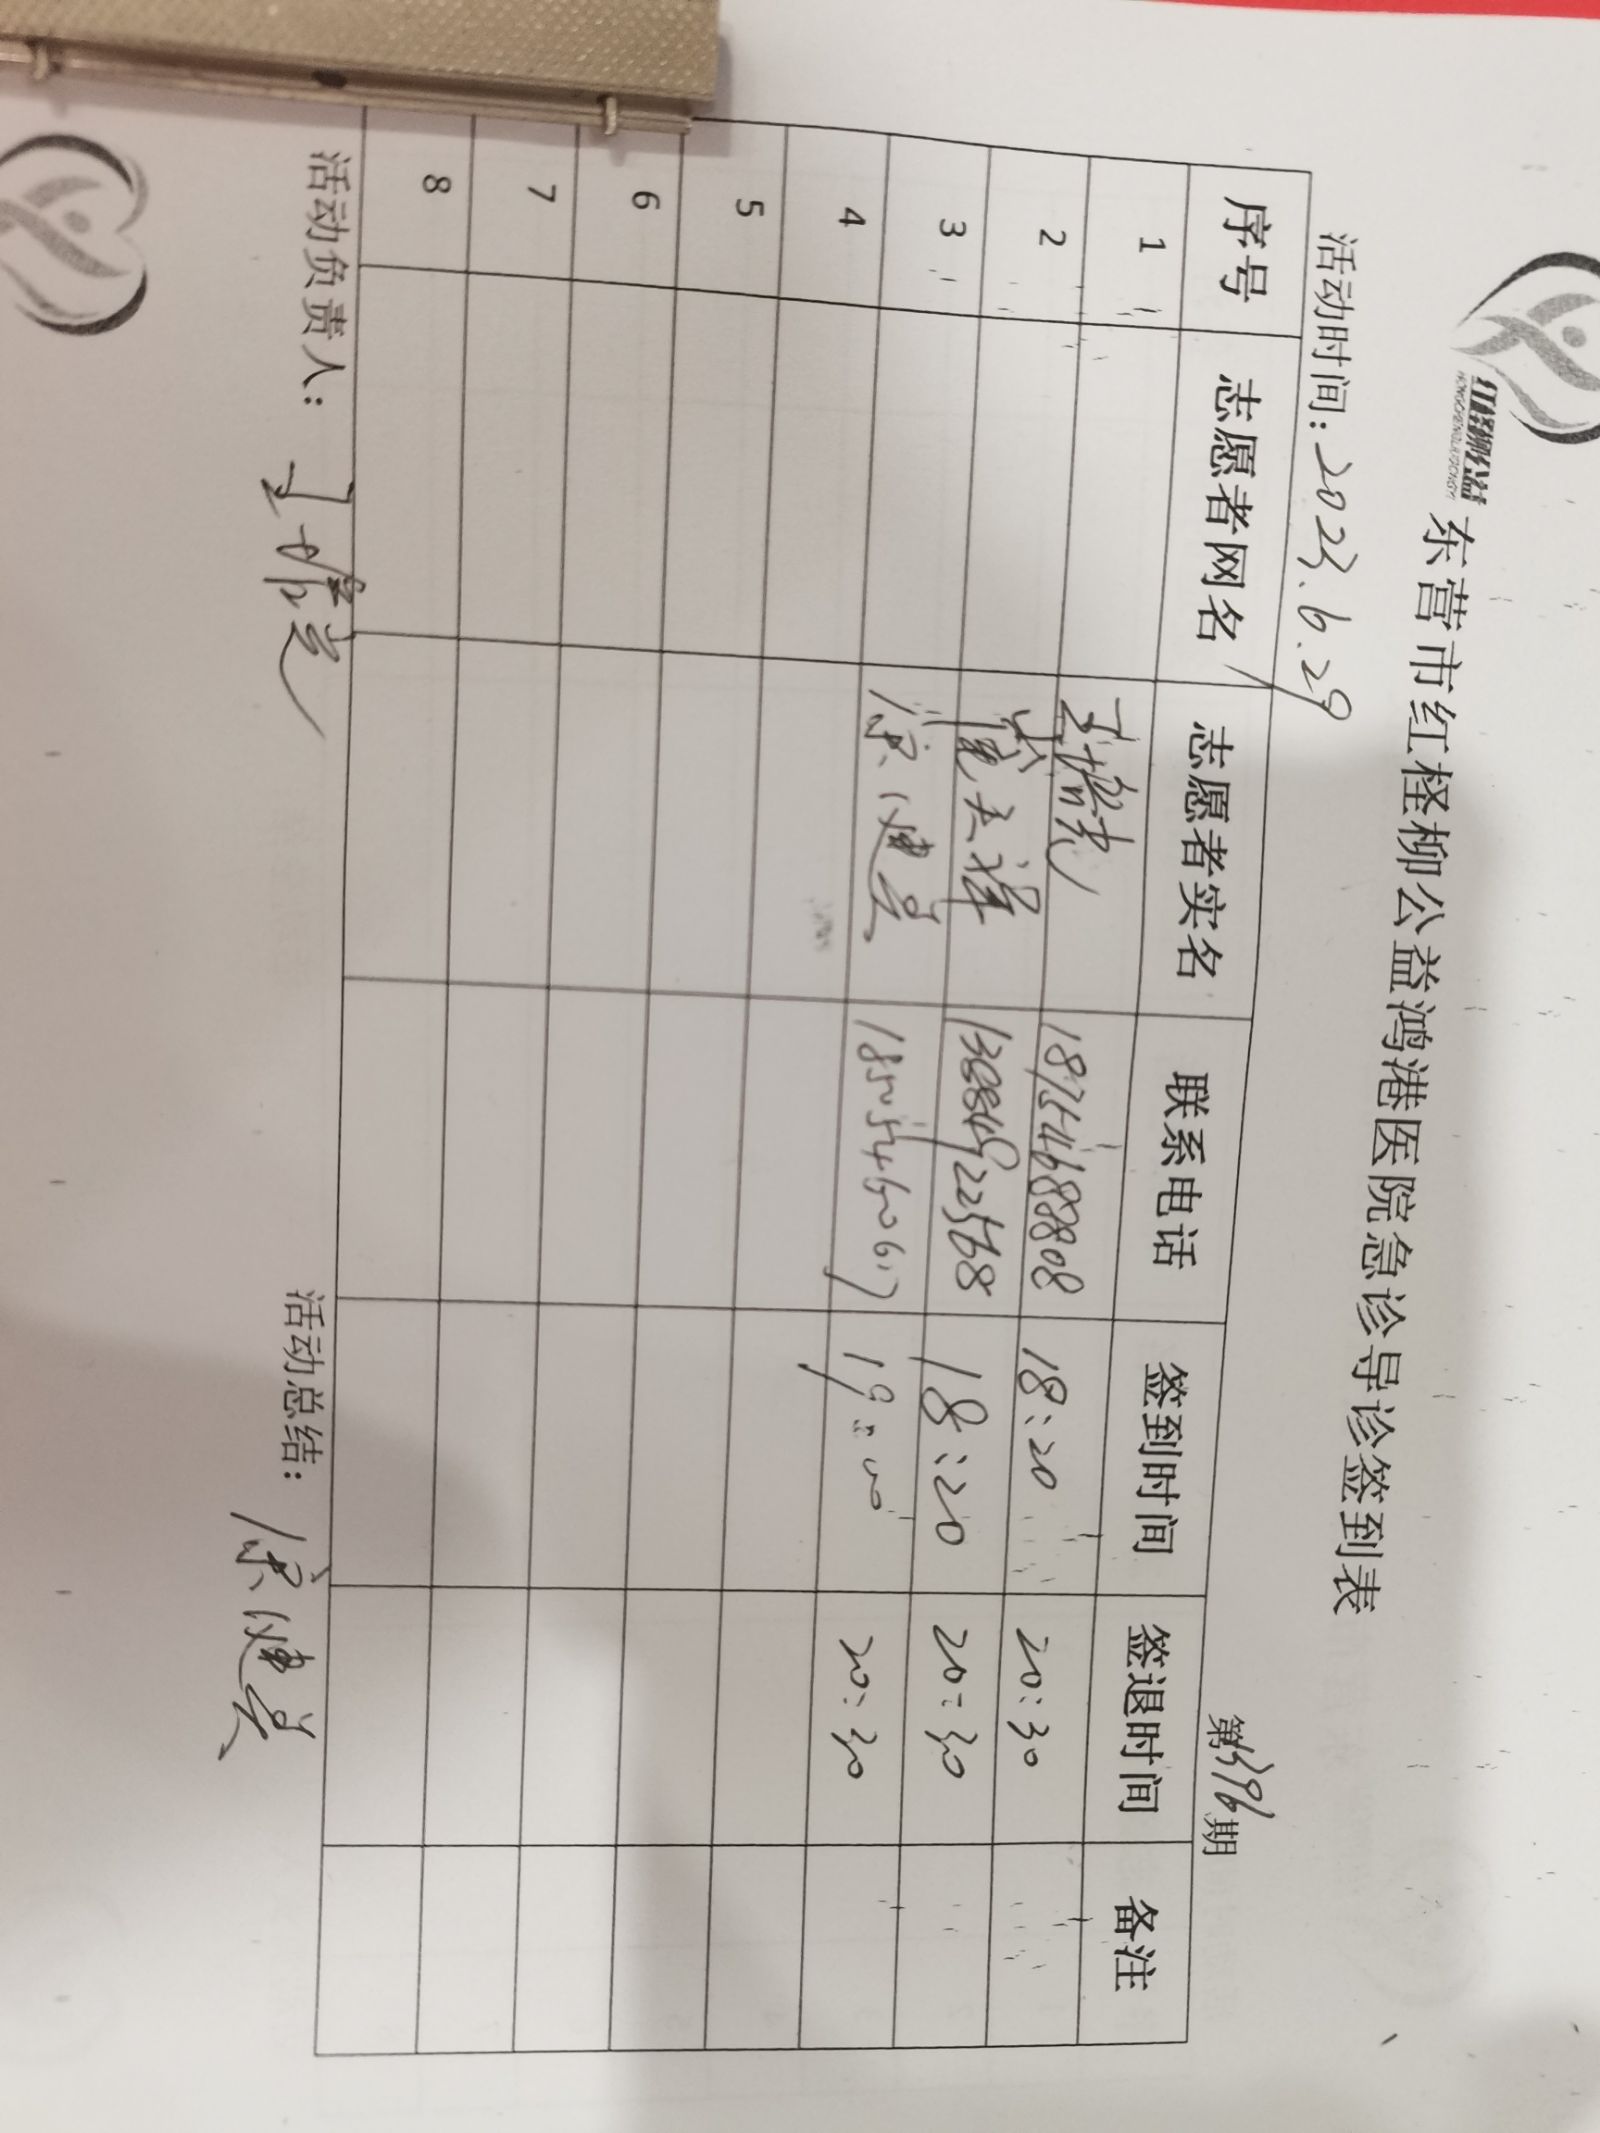 红柽柳公益
HONGCHENGLIUGONGYI
东营市红柽柳公益鸿港医院急诊导诊签到表
活动时间：2023.6.29 第1396期
序号 志愿者网名 志愿者实名 联系电话 签到时间 签退时间 备注
1 18754688808 18:20 20:30
2 18:20 20:30
3 康健美 19:00 20:30
4
5
6
7
8
活动负责人： 活动总结：康健美